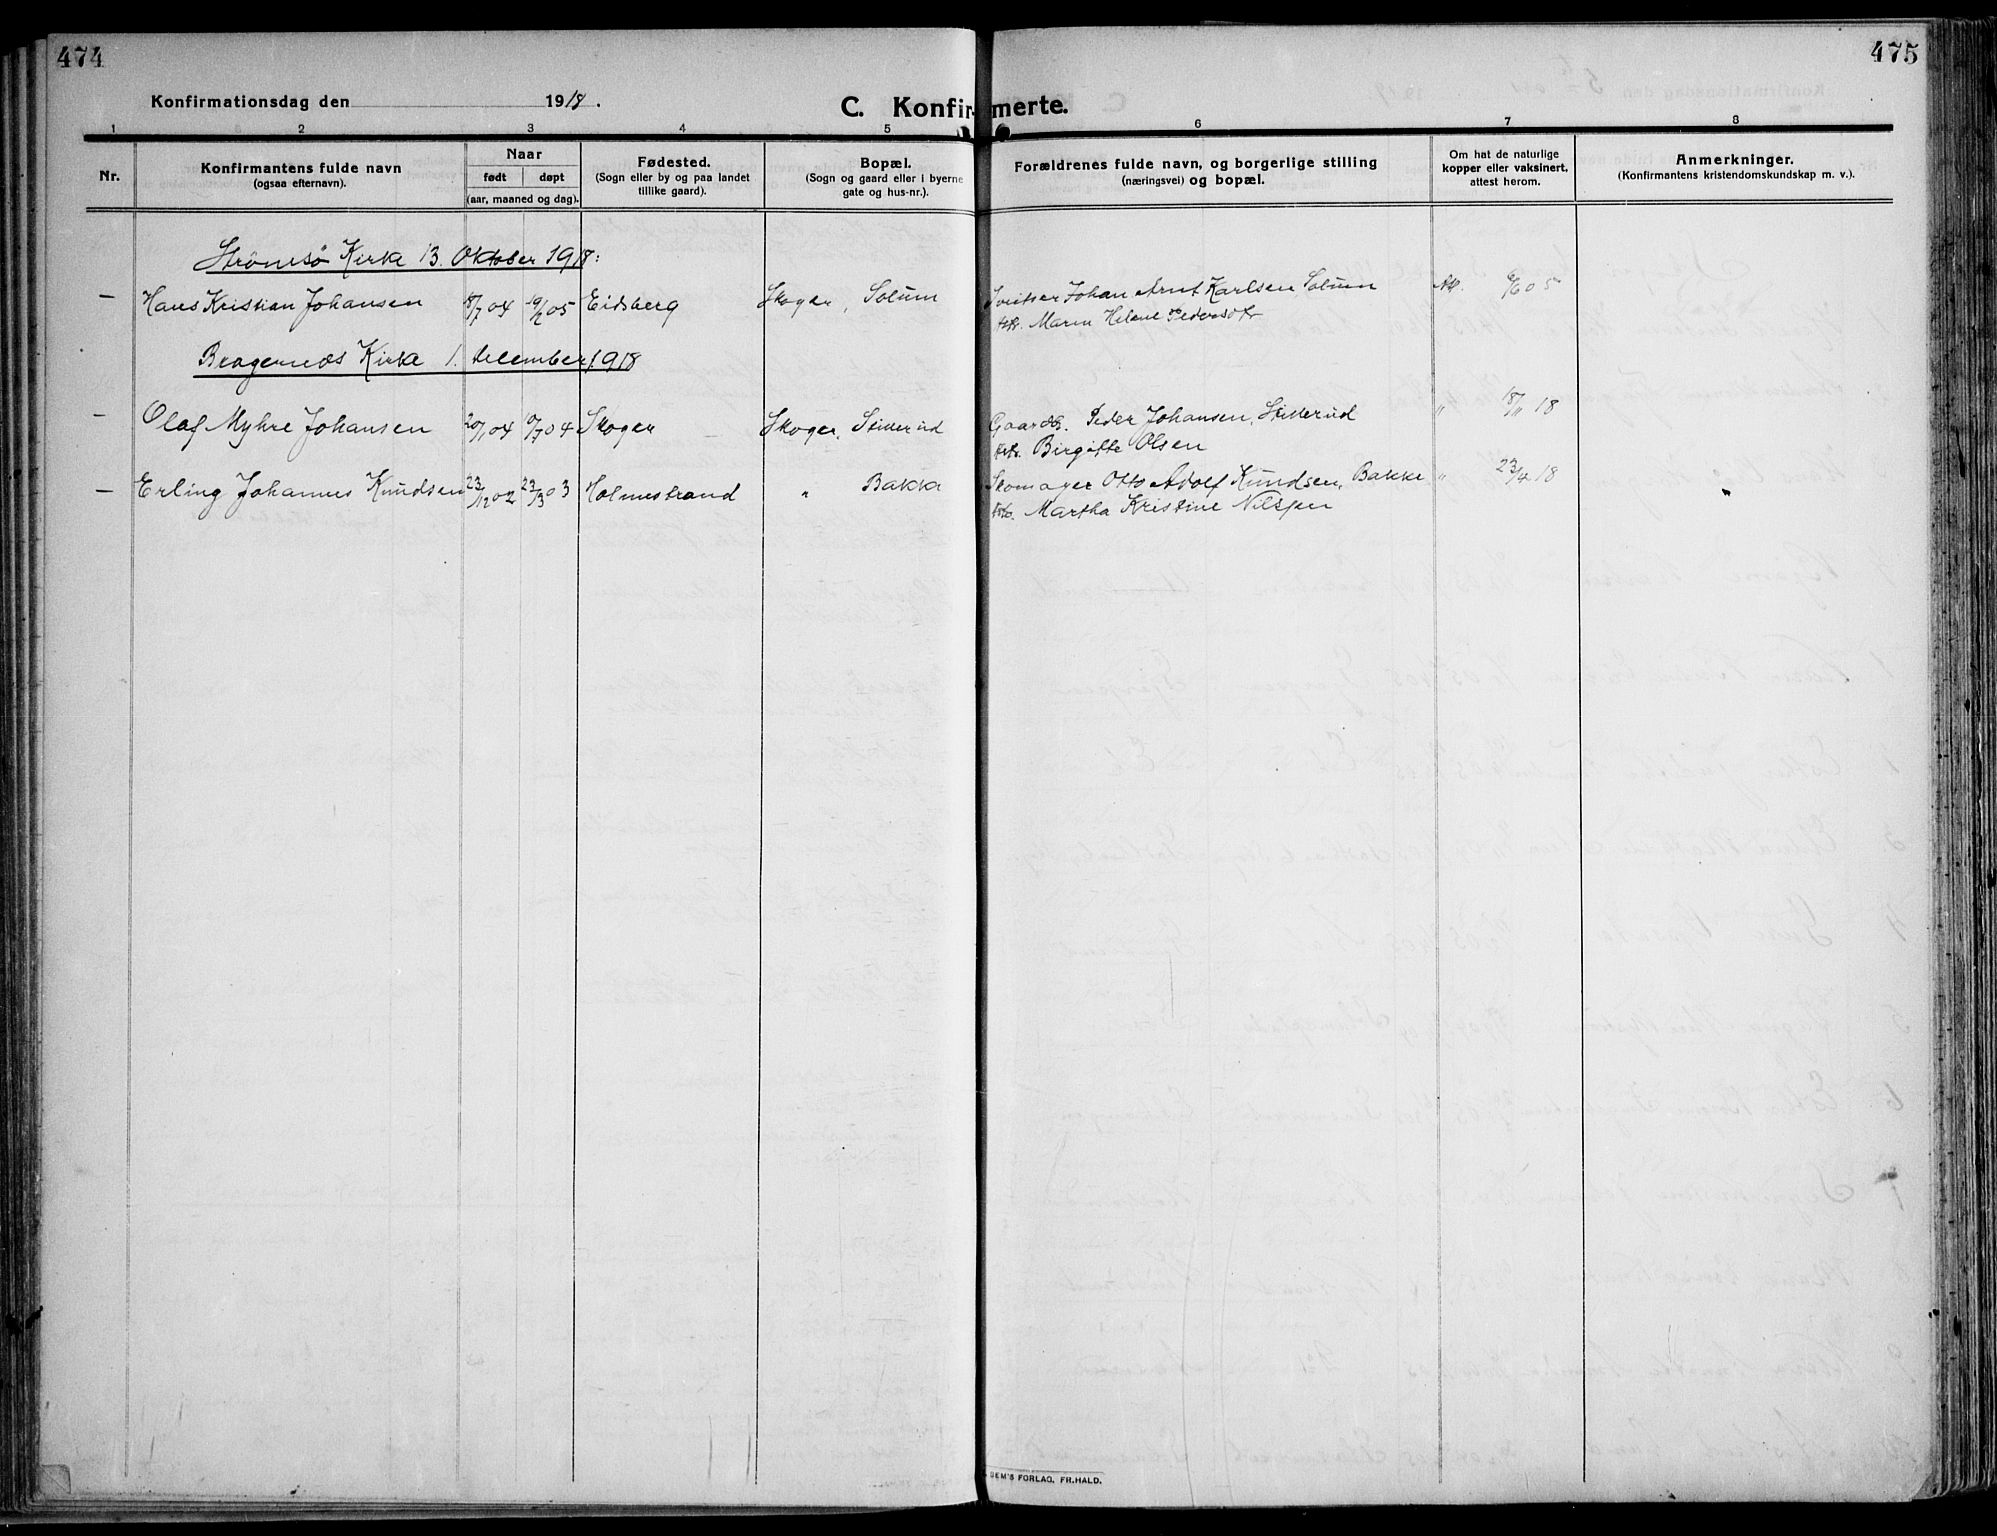 474
475
Konfirmationsdag den 1918.
C. Konfirmerte.
1 2 3 4 5 6 7 8
Nr.
Konfirmantens fulde navn
(ogsaa efternavn).
Naar
født døpt
(aar, maaned og dag).
Fødested.
(Sogn eller by og paa landet
tillike gaard).
Bopæl.
(Sogn og gaard eller i byerne
gate og hus-nr.).
Forældrenes fulde navn, og borgerlige stilling
(næringsvei) og bopæl.
Om hat de naturlige
kopper eller vaksinert,
attest herom.
Anmerkninger.
(Konfirmantens kristendomskundskap m. v.).
Strömsö Kirke 13. Oktober 1918:
– Hans Kristian Johansen 18/7 04 19/2 05 Eidsberg Skoger, Solum Sveitser Johan Arnt Karlsen, Solum At. 9/6 05
Maren Helene Pedersdtr
Bragernæs Kirke 1. december 1918
– Olaf Myhre Johansen 20/1 04 10/7 04 Skoger – Skoger, Stillerud Gaardbr. Peder Johansen, Stillerud " 18/11 18
Birgitte Olsen
– Erling Johannes Knudsen 23/12 02 22/3 03 Holmestrand " Bakke Skomager Otto Adolf Knudsen, Bakke " 23/4 18
Martha Kristine Nilssen
SEM'S FORLAG, FR.HALD.